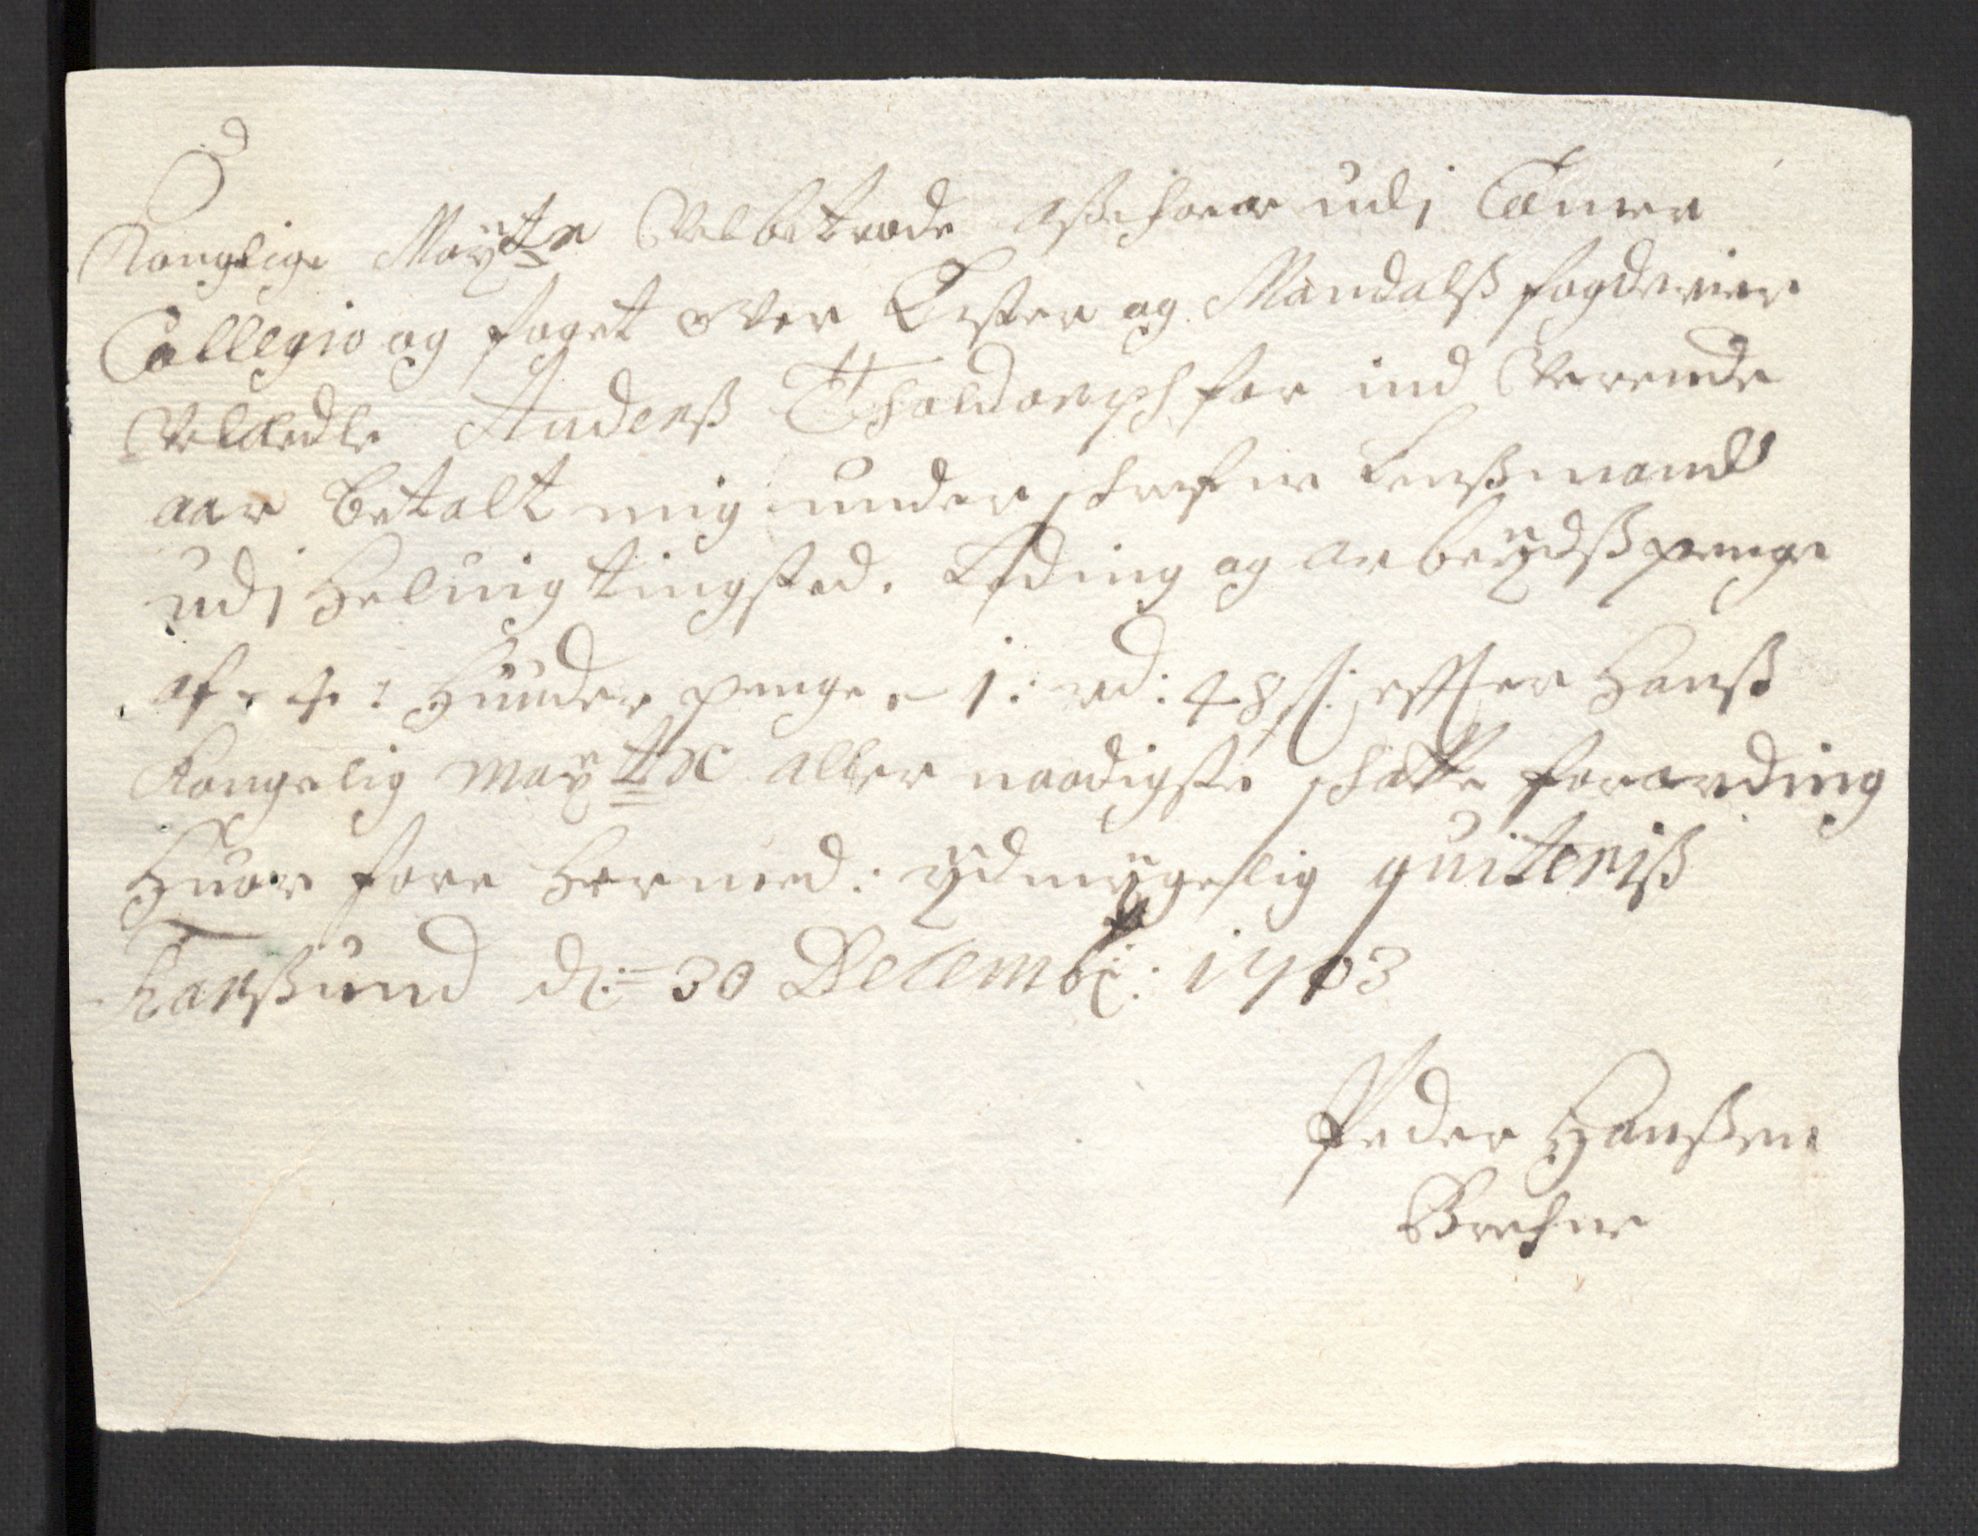 Konglige Maÿtz Velbetrode Assessor udj Camer
Collegio og foget over Lister og Mandalß fogderier
Velædle Anderß Tholdorph for ind Verende
aar betalt mig under schrefne Lenßmand
udj Heluig tingsted. Leding og arbeÿdßpenge
af 4: Hunder penge 1: rd: 48 s: efter Hanß
Kongelig Maÿtz aller naadigste schatte forordning
Huor fore Hermed: ÿdmÿgelig quiteriß
Farßund d: 30 Decembr: 1703
Peder Hanßen